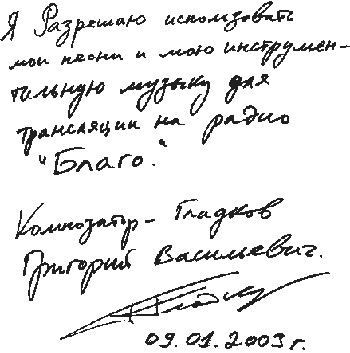 Я Разрешаю использовать
мои песни и мою инструмен-
тильную музыку для
трансляции на радио
"Благо."
Композитор - Гладков
Григорий Васильевич.
09.01.2003 г.